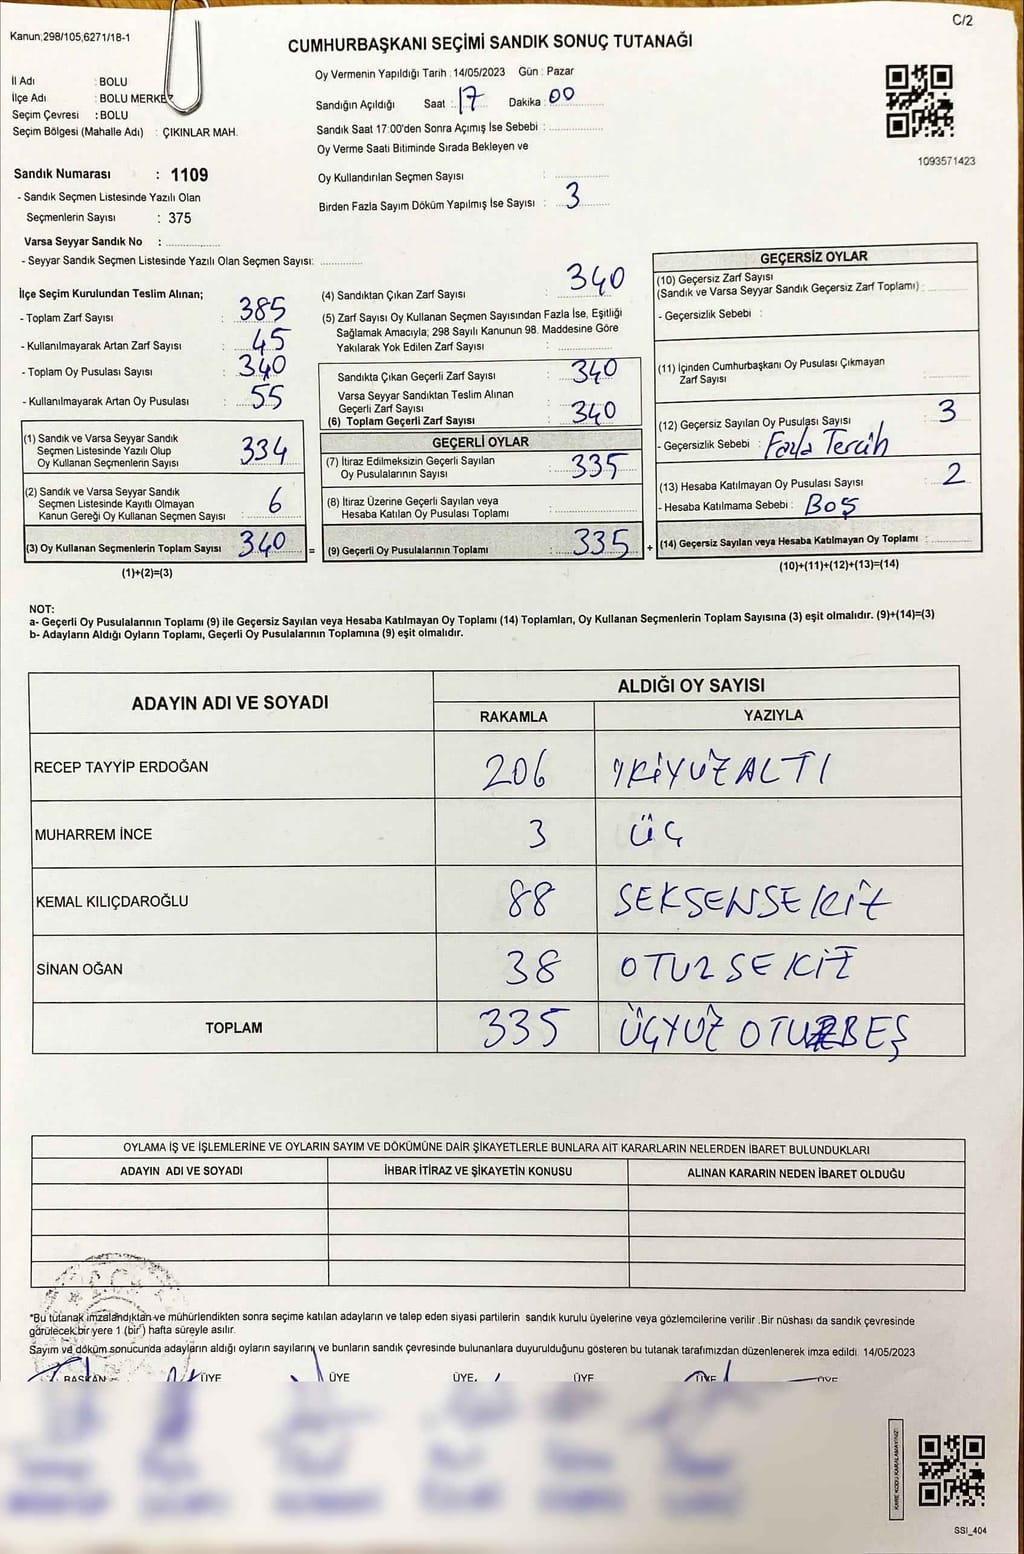 C/2
Kanun;298/105,6271/18-1
CUMHURBAŞKANI SEÇİMİ SANDIK SONUÇ TUTANAĞI
İl Adı : BOLU
İlçe Adı : BOLU MERKEZ
Seçim Çevresi : BOLU
Seçim Bölgesi (Mahalle Adı) : ÇIKINLAR MAH.
Oy Vermenin Yapıldığı Tarih : 14/05/2023 Gün : Pazar
Sandığın Açıldığı Saat : 17 Dakika : 00
Sandık Saat 17:00'den Sonra Açımış İse Sebebi :
Oy Verme Saati Bitiminde Sırada Bekleyen ve
Oy Kullandırılan Seçmen Sayısı :
Birden Fazla Sayım Döküm Yapılmış İse Sayısı : 3
1093571423
Sandık Numarası : 1109
- Sandık Seçmen Listesinde Yazılı Olan
Seçmenlerin Sayısı : 375
Varsa Seyyar Sandık No :
- Seyyar Sandık Seçmen Listesinde Yazılı Olan Seçmen Sayısı:
İlçe Seçim Kurulundan Teslim Alınan;
- Toplam Zarf Sayısı : 385
- Kullanılmayarak Artan Zarf Sayısı : 45
- Toplam Oy Pusulası Sayısı : 340
- Kullanılmayarak Artan Oy Pusulası : 55
(1) Sandık ve Varsa Seyyar Sandık
Seçmen Listesinde Yazılı Olup
Oy Kullanan Seçmenlerin Sayısı 334
(2) Sandık ve Varsa Seyyar Sandık
Seçmen Listesinde Kayıtlı Olmayan
Kanun Gereği Oy Kullanan Seçmen Sayısı : 6
(3) Oy Kullanan Seçmenlerin Toplam Sayısı 340 =
(1)+(2)=(3)
(4) Sandıktan Çıkan Zarf Sayısı : 340
(5) Zarf Sayısı Oy Kullanan Seçmen Sayısından Fazla İse, Eşitliği
Sağlamak Amacıyla; 298 Sayılı Kanunun 98. Maddesine Göre
Yakılarak Yok Edilen Zarf Sayısı :
Sandıkta Çıkan Geçerli Zarf Sayısı : 340
Varsa Seyyar Sandıktan Teslim Alınan
Geçerli Zarf Sayısı :
(6) Toplam Geçerli Zarf Sayısı : 340
GEÇERLİ OYLAR
(7) İtiraz Edilmeksizin Geçerli Sayılan
Oy Pusulalarının Sayısı : 335
(8) İtiraz Üzerine Geçerli Sayılan veya
Hesaba Katılan Oy Pusulası Toplamı :
(9) Geçerli Oy Pusulalarının Toplamı : 335 +
GEÇERSİZ OYLAR
(10) Geçersiz Zarf Sayısı
(Sandık ve Varsa Seyyar Sandık Geçersiz Zarf Toplamı) :
- Geçersizlik Sebebi :
(11) İçinden Cumhurbaşkanı Oy Pusulası Çıkmayan
Zarf Sayısı :
(12) Geçersiz Sayılan Oy Pusulası Sayısı : 3
- Geçersizlik Sebebi : Fazla Tercih
(13) Hesaba Katılmayan Oy Pusulası Sayısı : 2
- Hesaba Katılmama Sebebi : Boş
(14) Geçersiz Sayılan veya Hesaba Katılmayan Oy Toplamı :
(10)+(11)+(12)+(13)=(14)
NOT:
a- Geçerli Oy Pusulalarının Toplamı (9) ile Geçersiz Sayılan veya Hesaba Katılmayan Oy Toplamı (14) Toplamları, Oy Kullanan Seçmenlerin Toplam Sayısına (3) eşit olmalıdır. (9)+(14)=(3)
b- Adayların Aldığı Oyların Toplamı, Geçerli Oy Pusulalarının Toplamına (9) eşit olmalıdır.
ADAYIN ADI VE SOYADI ALDIĞI OY SAYISI
RAKAMLA YAZIYLA
RECEP TAYYİP ERDOĞAN 206 İKİYÜZALTI
MUHARREM İNCE 3 ÜÇ
KEMAL KILIÇDAROĞLU 88 SEKSENSEKİZ
SİNAN OĞAN 38 OTUZSEKİZ
TOPLAM 335 ÜÇYÜZ OTUZBEŞ
OYLAMA İŞ VE İŞLEMLERİNE VE OYLARIN SAYIM VE DÖKÜMÜNE DAİR ŞİKAYETLERLE BUNLARA AİT KARARLARIN NELERDEN İBARET BULUNDUKLARI
ADAYIN ADI VE SOYADI İHBAR İTİRAZ VE ŞİKAYETİN KONUSU ALINAN KARARIN NEDEN İBARET OLDUĞU
*Bu tutanak imzalandıktan ve mühürlendikten sonra seçime katılan adayların ve talep eden siyasi partilerin sandık kurulu üyelerine veya gözlemcilerine verilir .Bir nüshası da sandık çevresinde
görülecek bir yere 1 (bir) hafta süreyle asılır.
Sayım ve döküm sonucunda adayların aldığı oyların sayılarını ve bunların sandık çevresinde bulunanlara duyurulduğunu gösteren bu tutanak tarafımızdan düzenlenerek imza edildi. 14/05/2023
BAŞKAN ÜYE ÜYE ÜYE ÜYE ÜYE ÜYE
KARE KODU KARALAMAYINIZ!
SSI_404